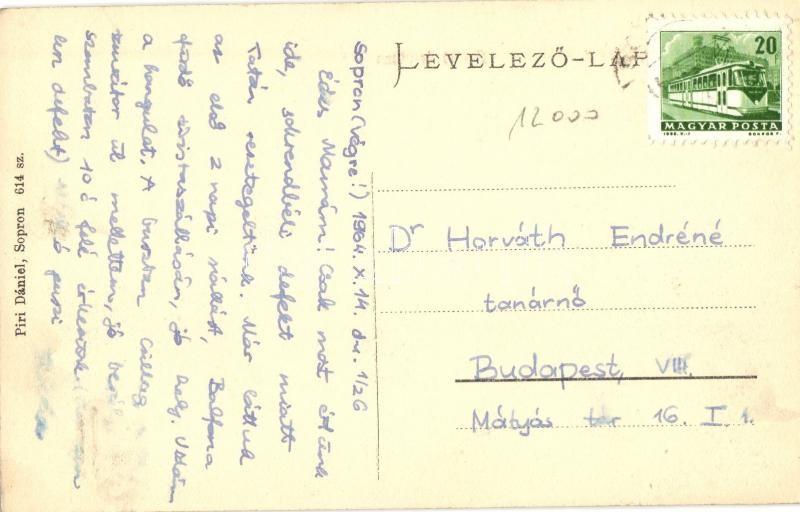 LEVELEZŐ-LAP
20
MAGYAR POSTA
12000
Sopron (végre!) 1964. X. 14. du. 1/2 6
Édes Mamám! Csak most értünk
ide, sorrendbéli defekt miatt
Tatán vesztegeltünk. Már láttuk
az első 2 napi szállást, Balfona
turistaszállásán, jó hely. Vidám
a hangulat. A buszban Csillag
ül mellettem, jó
szombaton 10 é felé érkezünk
defekt) puszi
Dr Horváth Endréné
tanárnő
Budapest, VIII.
Mátyás tér 16. I. 1.
Piri Dániel, Sopron 614 sz.